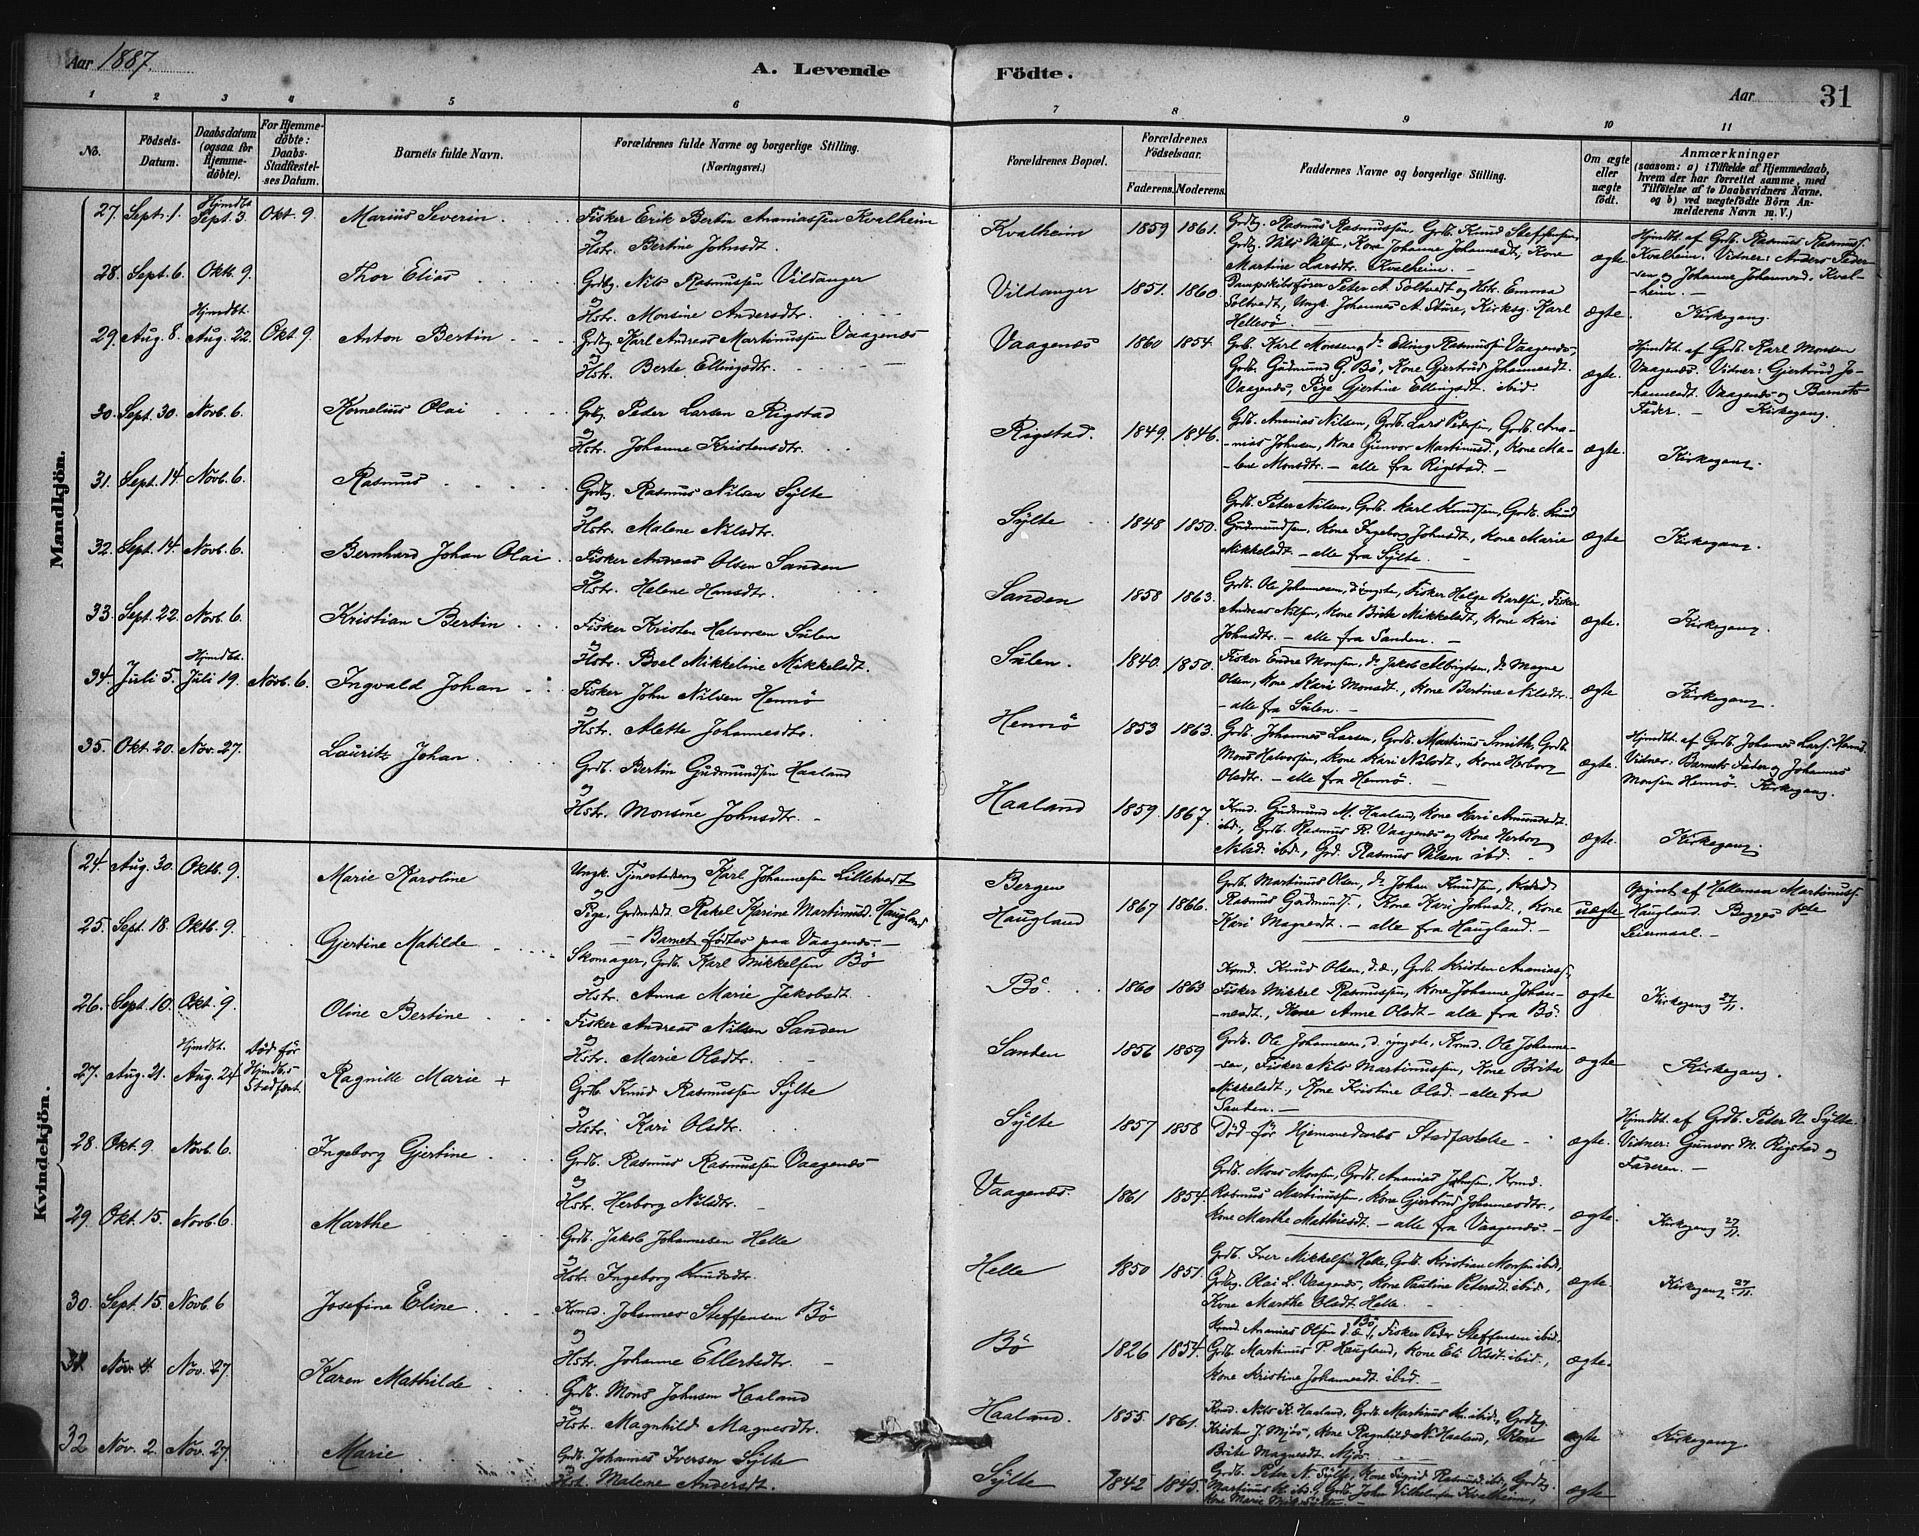 Aar 1887.
A. Levende Födte.
Aar 31
1 2 3 4 5 6 7 8 9 10 11
No.
Födsels-Datum.
Daabsdatum (ogsaa for Hjemme-döbte).
For Hjemme-döbte: Daabs-Stadfæstel-ses Datum.
Barnets fulde Navn.
Forældrenes fulde Navne og borgerlige Stilling.
(Næringsvei.)
Forældrenes Bopæl.
Forældrenes Födselsaar.
Faderens. Moderens.
Faddernes Navne og borgerlige Stilling.
Om ægte eller uægte födt.
Anmærkninger
(saasom: a) i Tilfælde af Hjemmedaab,
hvem der har forrettet samme, med
Tilföielse af to Daabsvidners Navne,
og b) ved uægtefödte Börn An-
melderens Navn m. V.)
Mandkjön.
27. Sept. 1. Hjmdbt. Sept. 3. Okt. 9. Marius Severin Fisker Erik Bertin Ananiassen Kvalheim
og Hstr. Bertine Johnsdt.
Kvalheim 1859 1861. Grdbg. Rasmus Rasmussen, Grdb. Knud Steffensen,
Grdbg. Nils Nilsen, Kone Johanne Johannesdt., Kone
Martine Larsdtr. Kvalheim. ægte
Hjmdbt. af Grdb. Rasmus Rasmuss.
Kvalheim. Vitner: Anders Peder-
sen og Johanne Johannesd. Kval-
heim.
28. Sept. 6. Oktb. 9. Thor Elias Grdbg. Nils Rasmussen Vildanger
og Hstr. Monsine Andersdtr.
Vildanger 1851. 1860. Dampskibsförer Peter A. Soltvedt og Hstr. Emma
Soltvedt, Ungk. Johannes A. Sture, Kirksg. Karl
Hellesö. ægte. Kirkegang.
29. Aug. 8. Hjmdbt. Aug. 22. Okt. 9. Anton Bertin Grdbg. Karl Andreas Martinussen Vaagenæs
og Hstr. Berte Ellingsdtr.
Vaagenæs 1860 1854. Grb. Karl Monsen, do Elling Rasmussen Vaagenæs,
Grdb. Gudmund G. Bö, Kone Gjertrud Johannesdt.
Vaagenæs, Pige Gjertine Ellingsdt. ibid. ægte.
Hjmdbt. af Grdb. Karl Monsen
Vaagenæs. Vitner: Gjertrud Jo-
hannesdt. Vaagenæs og Barnets
Fader. — Kirkegang.
30. Sept. 30. Novb. 6. Kornelius Olai Grdbg. Peder Larsen Rigstad
og Hstr. Johanne Kristensdtr.
Rigstad. 1849. 1846. Grdb. Ananias Nilsen, Grdb. Lars Pedersen, Grdb. Ana-
nias Johnsen, Kone Gunvor Martinusd., Kone Ma-
lene Monsdtr. — alle fra Rigstad. — ægte. Kirkegang.
31. Sept. 14. Novb. 6. Rasmus Grdbg. Rasmus Nilsen Sylte
og Hstr. Malene Nilsdtr.
Sylte 1848 1850. Grdb. Peter Nilsen, Grdb. Karl Knudsen, Grdb. Knud
Gudmundsen, Kone Ingeborg Johnsdt., Kone Marie
Mikkelsdt. — alle fra Sylte. ægte Kirkegang.
32. Sept. 14. Novb. 6. Bernhard Johan Olai Fisker Andreas Olsen Sanden
og Hstr. Helene Hansdtr.
Sanden 1858 1863. Grdb. Ole Johannesen, d. yngste, Fisker Helge Karlsen, Fisker
Andreas Nilsen, Kone Brite Mikkelsdt, Kone Kari
Johnsdtr. — alle fra Sanden. ægte. Kirkegang.
33. Sept. 22. Novb. 6. Kristian Bertin Fisker Kristen Halvorsen Sulen
og Hstr. Boel Mikkeline Mikkelsdt.
Sulen. 1840. 1850. Fisker Endre Monsen, do Jakob Albrigtsen, do Magne
Olsen, Kone Kari Monsdt., Kone Bertine Nilsdtr.
— alle fra Sulen. — ægte Kirkegang.
34. Juli 5. Hjmdbt. Juli 19. Novb. 6. Ingvald Johan Fisker John Nilsen Hennö
og Hstr. Alette Johannesdtr.
Hennö 1853 1863. Grdb. Johannes Larsen, Grdb. Martinus Smith, Grdb.
Mons Halvorsen, Kone Kari Nilsdt., Kone Herborg
Olsdtr. — alle fra Hennö. ægte.
Hjmdbt. af Grdb. Johannes Lars. Hennö.
Vitner: Barnets Fader og Johannes
Monsen Hennö. Kirkegang.
35. Okt. 20. Nov. 27. Lauritz Johan Grdb. Bertin Gudmundsen Haaland
og Hstr. Monsine Johnsdtr.
Haaland 1859. 1867. Krmd. Gudmund M. Haaland, Kone Kari Amundsdt.
ibid., Grdb. Rasmus R. Vaagenæs og Kone Herborg
Nilsd. ibd., Grd. Rasmus Nilsen ibid. ægte. Kirkegang.
Kvindekjön.
24. Aug. 30. Oktb. 9. Marie Karoline Ungk. Tjenestedreng Karl Johannesen Lilletvedt
og Pige, Grdmdsdt. Rakel Karine Martinusd. Haugland
— Barnet födtes paa Vaagenæs. —
Bergen
Haugland 1867 1866. Grdb. Martinus Olsen, do Johan Knudsen,
Rasmus Gudmunds., Kone Kari Johnsdt., Kone
Kari Magnesdt. — alle fra Haugland. — uægte
Opgivet af Martinuss.
Haugland. Begges 1ste
Leiermaal. —
25. Sept. 18. Oktb. 9. Gjertine Matilde Skomager, Grdb. Karl Mikkelsen Bö
og Hstr. Anna Marie Jakobsdt.
Bö. 1860 1863 Krmd. Knud Olsen, d.æ., Grb. Kristen Ananiass.
Fisker Mikkel Rasmussen, Kone Johanne Johan-
nesdt., Kone Anne Olsdt — alle fra Bö. ægte Kirkegang 27/11.
26. Sept. 10. Okt. 9. Oline Bertine Fisker Andreas Nilsen Sanden
og Hstr. Marie Olsdtr.
Sanden 1856 1859 Grdb. Ole Johannesen, d. yngste, Krmd. Ole Johanne-
sen, Fisker Nils Martinussen, Kone Brita
Mikkelsdt., Kone Kristine Olsd. — alle fra
Sanden. — ægte Kirkegang.
27. Aug. 21. Hjmdbt. Aug. 24 Död för Hjmdb.s Stadfæst. Ragnille Marie + Grdb. Knud Rasmussen Sylte
og Hstr. Kari Olsdtr.
Sylte 1857 1858 Död för Hjemmedaabs Stadfæstelse — ægte.
Hjmdbt. af Grdb. Peter N. Sylte.
Vidner: Gunvor M. Rigstad og
Faderen. —
28. Okt. 9. Novb. 6. Ingeborg Gjertine Grdb. Rasmus Rasmussen Vaagenæs
og Hstr. Herborg Nilsdtr.
Vaagenæs. 1861 1854. Grdb. Mons Monsen, Grdb. Ananias Johnsen, Krmd.
Rasmus Martinussen, Kone Gjertrud Johannesdtr.,
Kone Marthe Mathiasdt. — alle fra Vaagenæs. — ægte. Kirkegang 27/11.
29. Okt. 15. Novb. 6. Marthe Grdb. Jakob Johannesen Helle
og Hstr. Ingeborg Knudsdtr.
Helle 1850 1851. Grdb. Iver Mikkelsen Helle, Grdb. Kristian Monsen ibid.,
Grdbg. Olai L. Vaagenæs, Kone Pauline Petersdt ibid.,
Kone Marthe Olsdt. Helle. — ægte. Kirkegang 27/11.
30. Sept. 15. Novb. 6 Josefine Eline Krmd. Johannes Steffensen Bö
og Hstr. Johanne Ellertsdt.
Bö 1826 1854. Krmd. Ananias Olsen d. æ. Bö, Fisker Peder Steffensen ibid.
Grdb. Martinus P. Haugland, Kone Eli Olsdt ibid.,
Kone Kristine Johannesdt ibid. — ægte.
31. Nov. 4. Nov. 27. Karen Mathilde Grdb. Mons Johnsen Haaland
og Hstr. Magnhild Magnesdtr.
Haaland. 1855. 1861. Krmd. Nils K. Haaland, Grdb. Martinus K. ibid., Grdbg.
Kristen J. Mjös, Kone Ragnhild N. Haaland, Kone
Brite Magnesdt. Mjös. ægte Kirkegang
32 Nov. 2. Nov. 27. Marie Grdb. Johannes Iversen Sylte
og Hst. Malene Andersdt.
Sylte 1842 1845. Grdb. Peter N. Sylte, Kone Sigrid Rasmusd. ibid., Grdbg.
Martinus K. ibd., Grdb. John Vilhelmsen Kvalheim, ægte